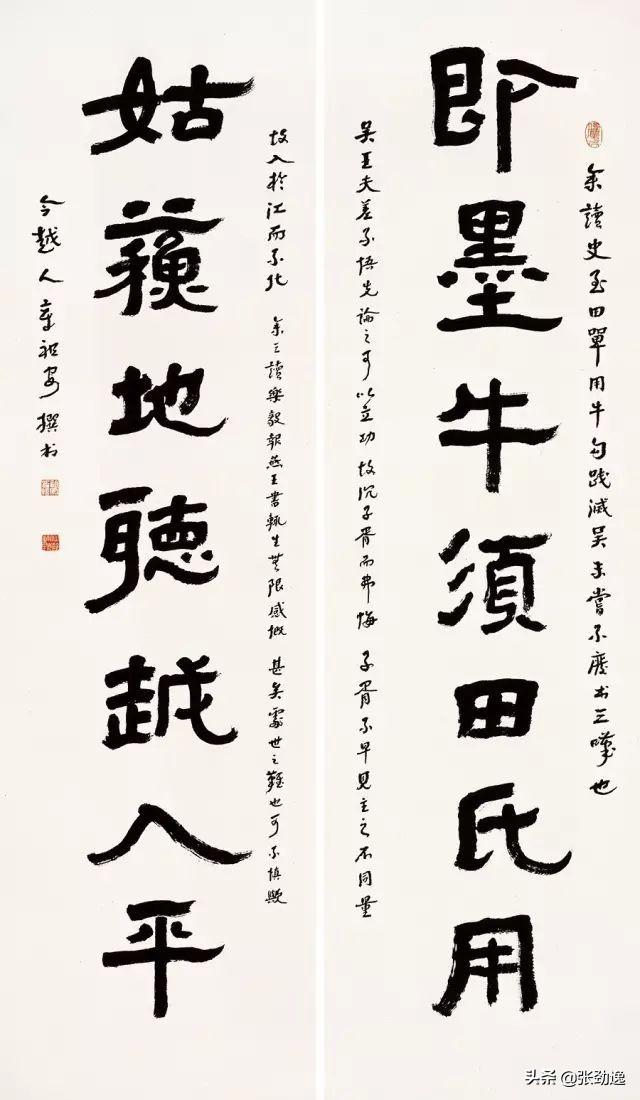 余讀史至田單用牛句踐滅吳未嘗不廢书三嘆也
即墨牛須田氏用
吳王夫差不悟先論之可以立功 故沉子胥而弗悔 子胥不早見主之不同量
故入於江而不化 余三讀樂毅報燕王書輒生無限感慨 甚矣處世之難也可不慎歟
姑蘇地聽越人平
今越人章祖安撰书
头条 @张劲逸